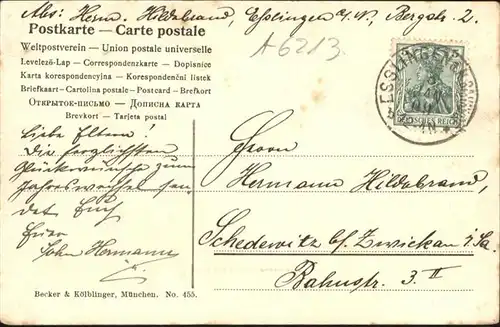 Abs: Herm. Hildebrand, Esslingen a/N, Bergstr. 2.
Postkarte — Carte postale
A6213
Weltpostverein — Union postale universelle
Levelező-Lap — Correspondenzkarte — Dopisnice
Karta korespondencyjna — Korespondenční listek
Briefkaart — Cartolina postale — Postcard — Brefkort
Открытое-письмо — Дописна карта
Brevkort — Tarjeta postal
ESSLINGEN
DEUTSCHES REICH
Liebe Eltern!
Die herzlichsten
Glückwünsche zum
Jahreswechsel sen-
det Euch
Euer
Sohn Hermann
Herrn
Hermann Hildebrand,
Schedewitz b/ Zwickau i/Sa.
Bahnstr. 3. II
Becker & Kölblinger, München. No. 455.